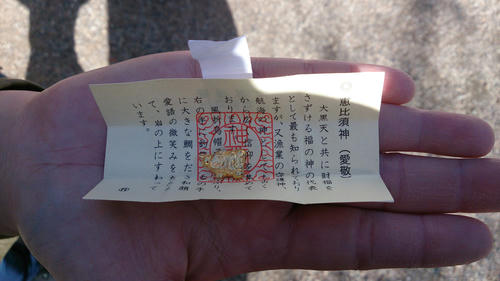 恵比須神（愛敬）
大黒天と共に財福を
さずける福の神の代表
として最も知られており
ますが、又漁業の守護神、
航海の神として
から 信仰 めて
おります
風折烏帽
右の手に釣 の手
に大きな鯛をだき和顔
愛語の微笑みを
て、岩の上にすわって
います。
神